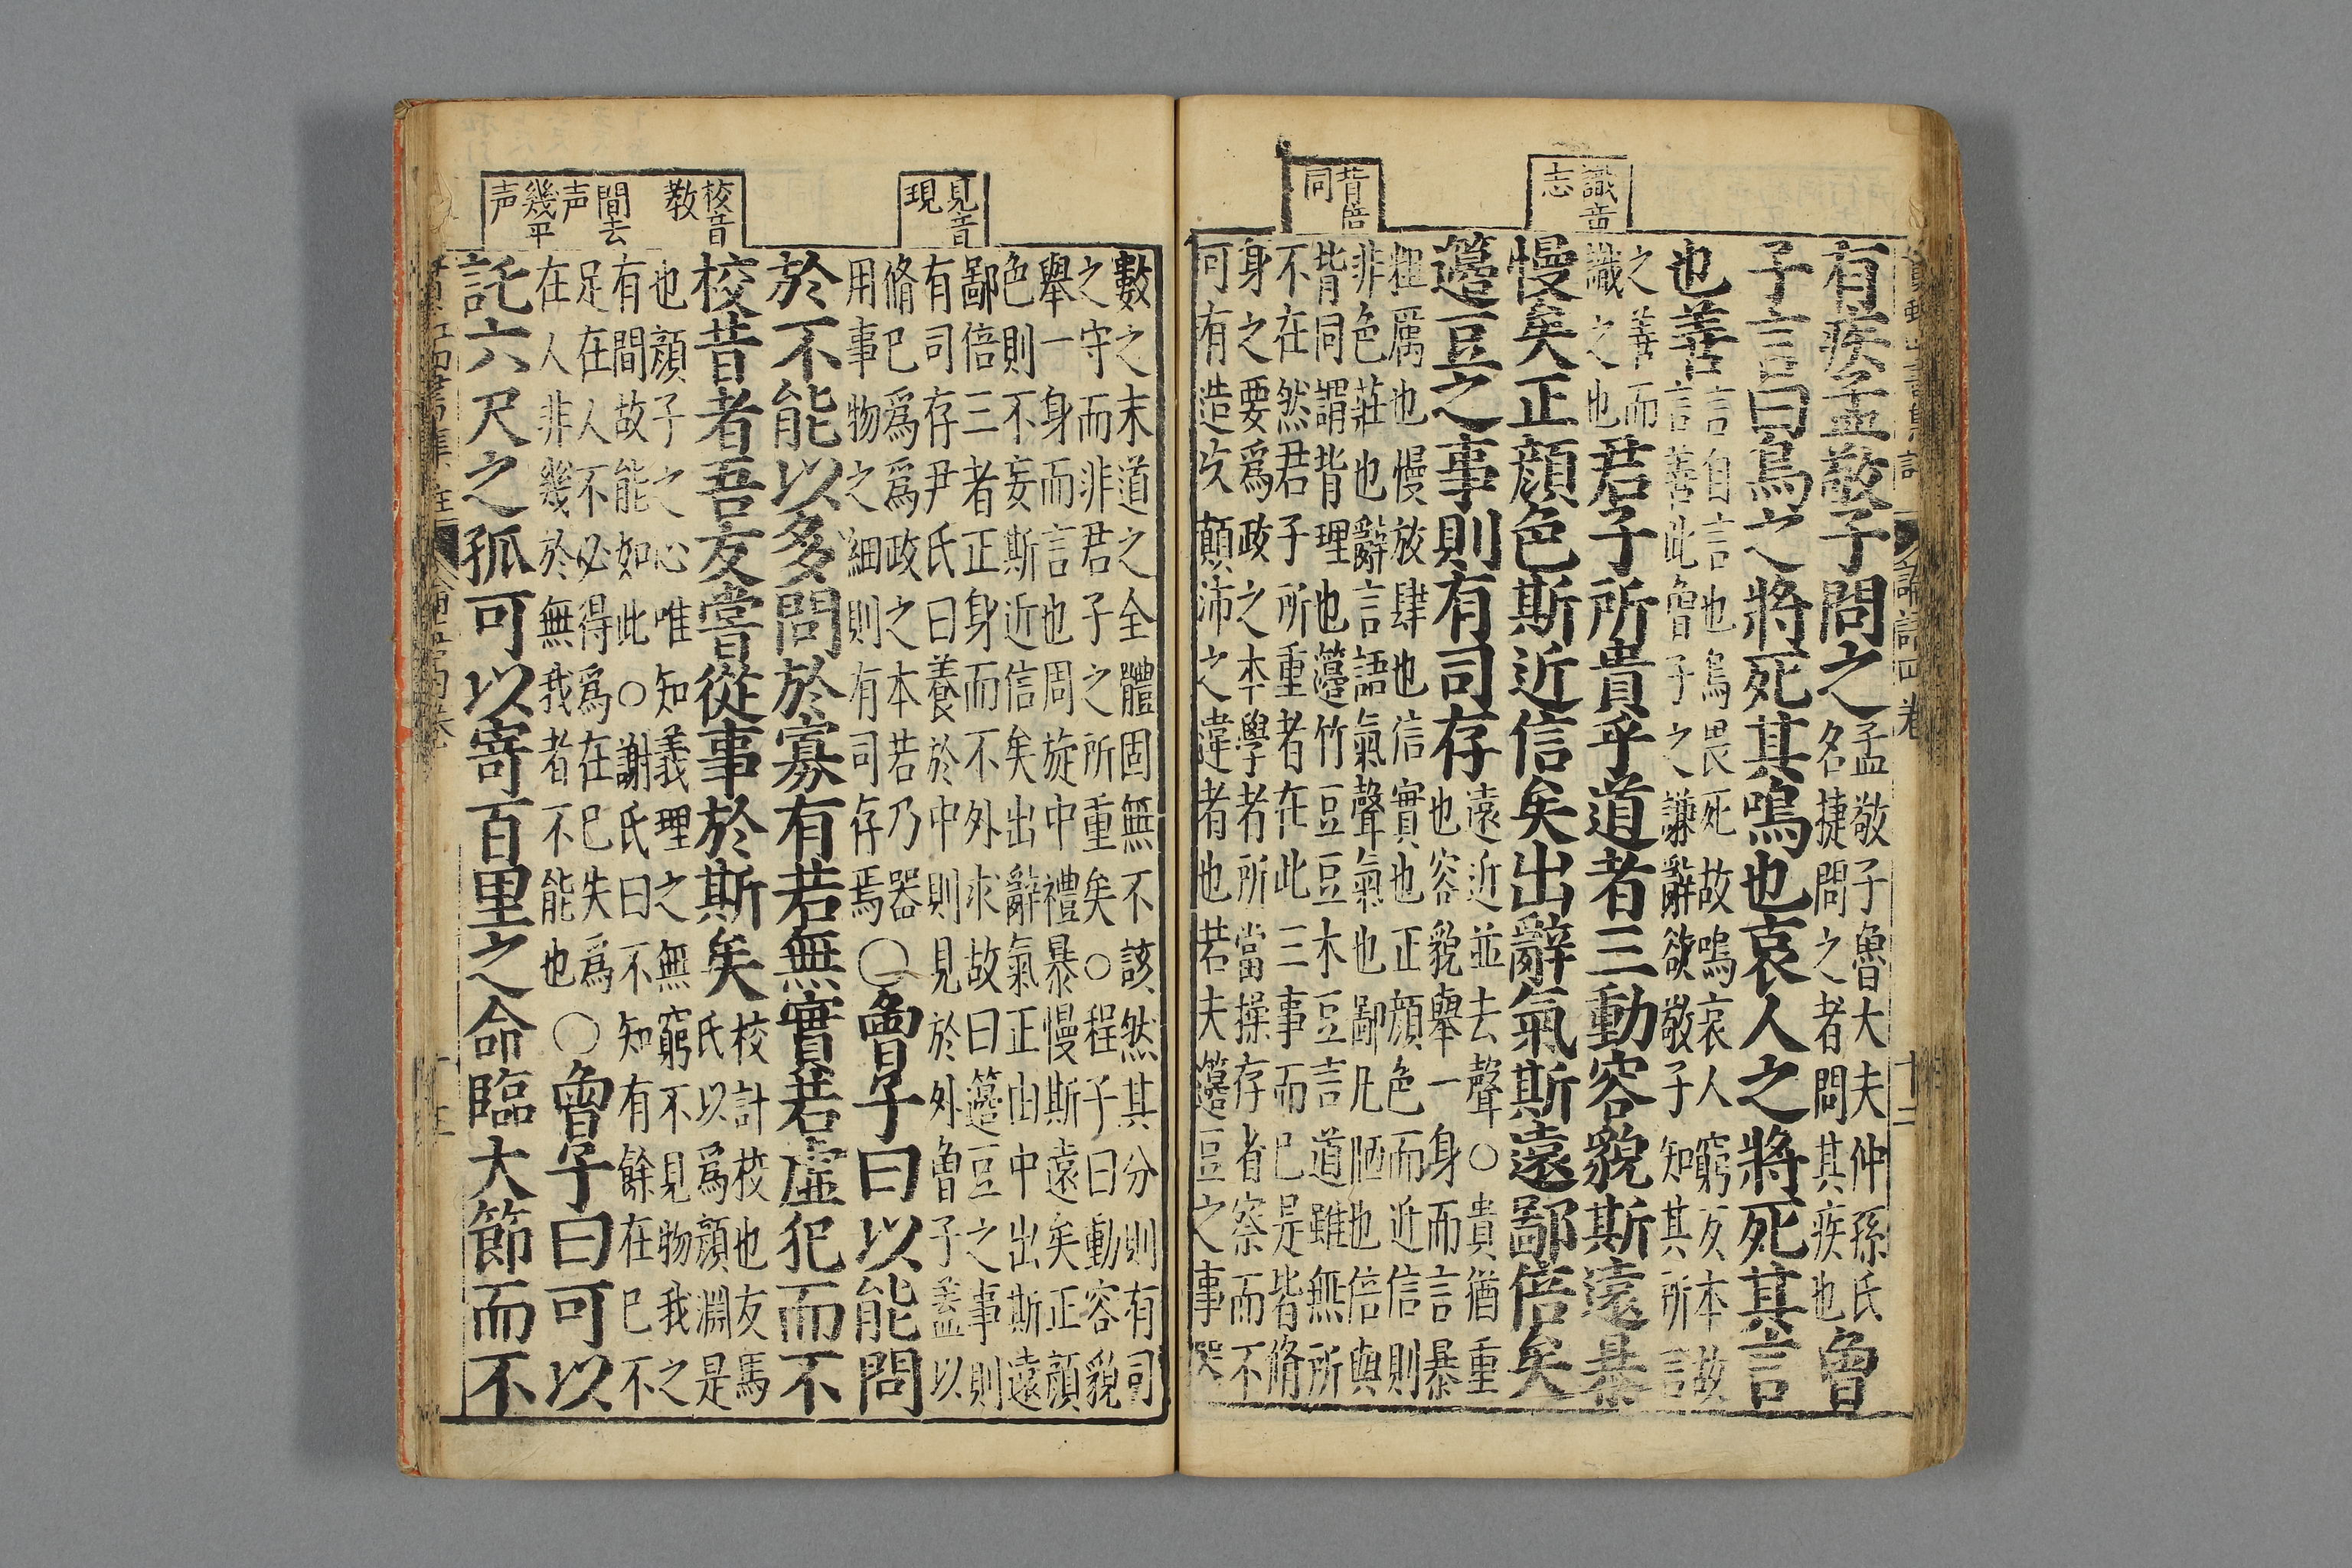 識音
志
背倍
同
論語四卷
十二
有疾孟敬子問之孟敬子魯大夫仲孫氏
名捷問之者問其疾也曾
子言曰鳥之將死其鳴也哀人之將死其言
也善言自言也鳥畏死故鳴哀人窮反本故
言善此曾子之謙辭欲敬子知其所言
之善而
識之也君子所貴乎道者三動容貌斯遠暴
慢矣正顔色斯近信矣出辭氣斯遠鄙倍矣
籩豆之事則有司存遠近並去聲○貴猶重
也容貌舉一身而言暴
粗厲也慢放肆也信實也正顔色而近信則
非色莊也辭言語氣聲氣也鄙凡陋也倍與
背同謂背理也籩竹豆豆木豆言道雖無所
不在然君子所重者在此三事而已是皆脩
身之要爲政之本學者所當操存省察而不
可有造次顛沛之違者也若夫籩豆之事器
見音
現
校音
教
間去
声
幾平
声
數之末道之全體固無不該然其分則有司
之守而非君子之所重矣○程子曰動容貌
舉一身而言也周旋中禮暴慢斯遠矣正顔
色則不妄斯近信矣出辭氣正由中出斯遠
鄙倍三者正身而不外求故曰籩豆之事則
有司存尹氏曰養於中則見於外曾子蓋以
脩已爲爲政之本若乃器
用事物之細則有司存焉○曾子曰以能問
於不能以多問於寡有若無實若虛犯而不
校昔者吾友嘗從事於斯矣校計校也友馬
氏以爲顔淵是
也顔子之心唯知義理之無窮不見物我之
有間故能如此○謝氏曰不知有餘在已不
足在人不必得爲在已失爲
在人非幾於無我者不能也○曾子曰可以
託六尺之孤可以寄百里之命臨大節而不